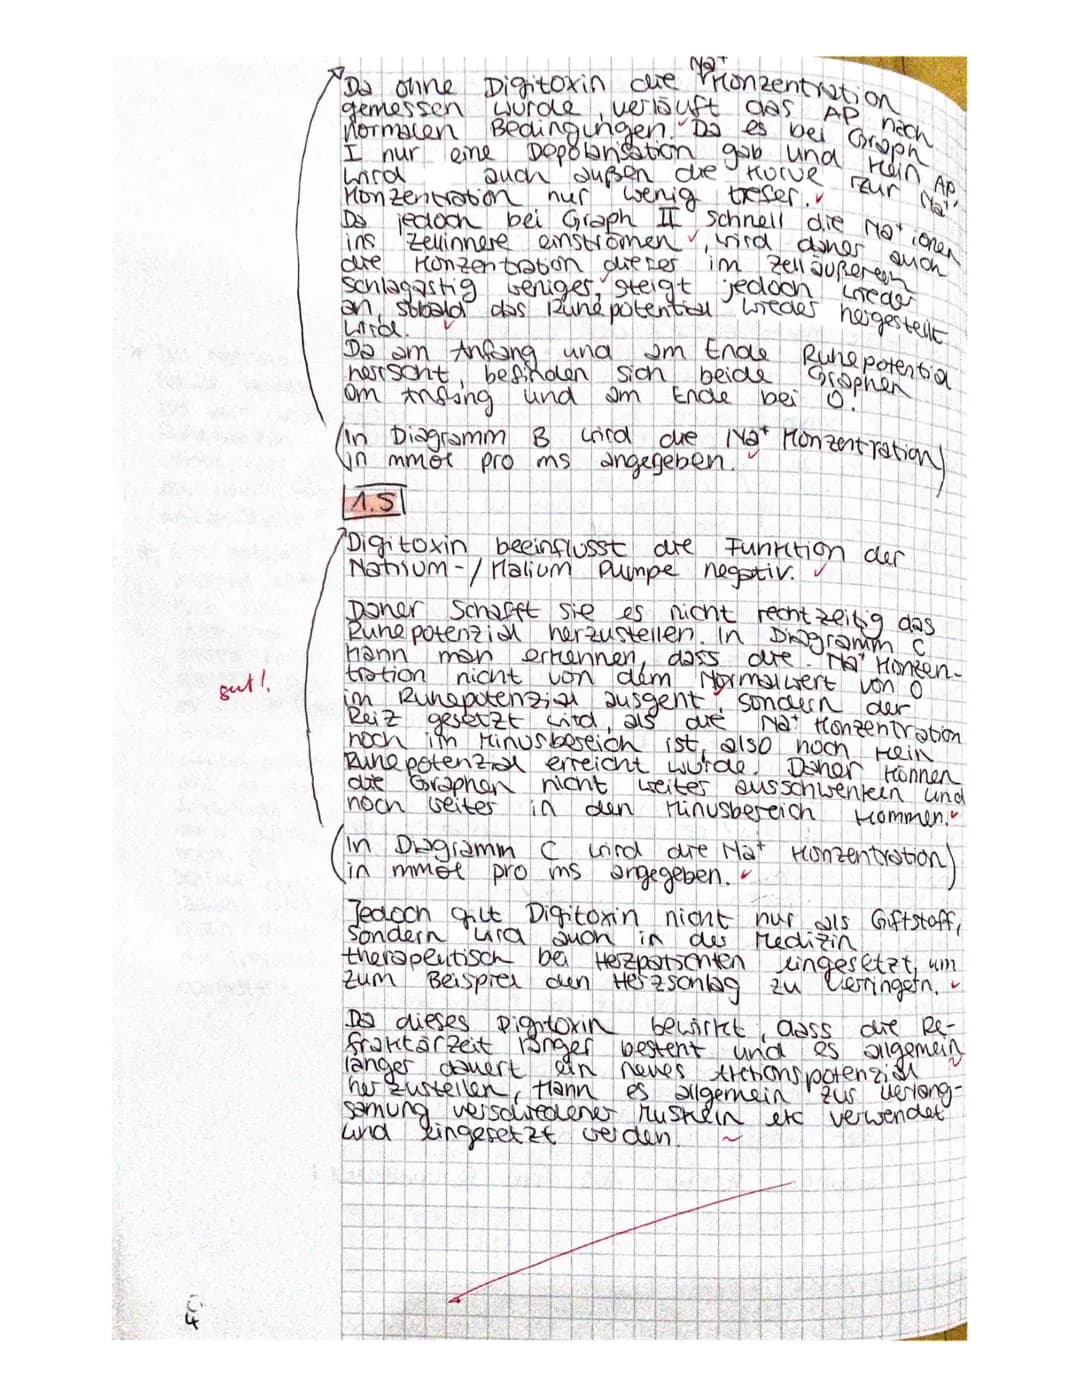 Na+
Da ohne Digitoxin die Konzentration
gemessen wurde, verläuft das AP nach
normalen Bedingungen. Da es bei Graph
I nur eine Depolarisation gab und kein AP,
wird auch außen die Kurve zur Na+
Konzentration nur wenig tiefer.
Da jedoch bei Graph II schnell die Na+ ionen
ins Zellinnere einströmen, wird daher auch
die Konzentration dieser im Zelläußeren
schlagartig weniger, steigt jedoch wieder
an, sobald das Ruhepotential wieder hergestellt
wird.
Da am Anfang und am Ende Ruhepotential
herrscht, befinden sich beide Graphen
am Anfang und am Ende bei 0.
(In Diagramm B wird die Na+ Konzentration)
(in mmol pro ms angegeben.
1.5
Digitoxin beeinflusst die Funktion der
Natrium-/Kalium Pumpe negativ.
Daher schafft sie es nicht rechtzeitig das
Ruhepotenzial herzustellen. In Diagramm C
kann man erkennen, dass die Na+ Konzen-
tration nicht von dem Normalwert von 0
gut!
im Ruhepotenzial ausgeht, sondern der
Reiz gesetzt wird, als die Na+ Konzentration
noch im Minusbereich ist, also noch kein
Ruhepotenzial erreicht wurde. Daher können
die Graphen nicht weiter ausschwenken und
noch weiter in den Minusbereich kommen.
(In Diagramm C wird die Na+ Konzentration)
(in mmol pro ms angegeben.
Jedoch gilt Digitoxin nicht nur als Giftstoff,
sondern wird auch in der Medizin
therapeutisch bei Herzpatienten eingesetzt, um
zum Beispiel den Herzschlag zu verringern.
Da dieses Digitoxin bewirkt, dass die Re-
fraktärzeit länger besteht und es allgemein
länger dauert ein neues Aktionspotenzial
herzustellen, kann es allgemein zur Verlang-
samung verschiedener Muskeln etc verwendet
und eingesetzt werden.